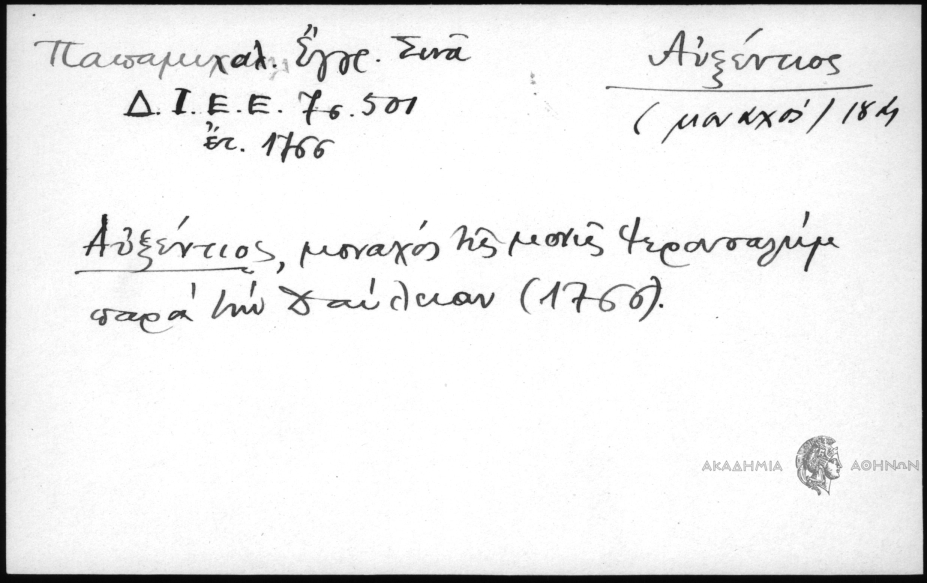 Παπαμιχαλ. Ἔγγρ. Σινᾶ
Δ. Ι. Ε. Ε. 7σ. 501
ἔτ. 1766
Αὐξέντιος
(μοναχός) 18
Αὐξέντιος, μοναχός τῆς μονῆς Ἱερουσαλήμ
παρά τήν Δαύλειαν (1766).
ΑΚΑΔΗΜΙΑ ΑΘΗΝΩΝ